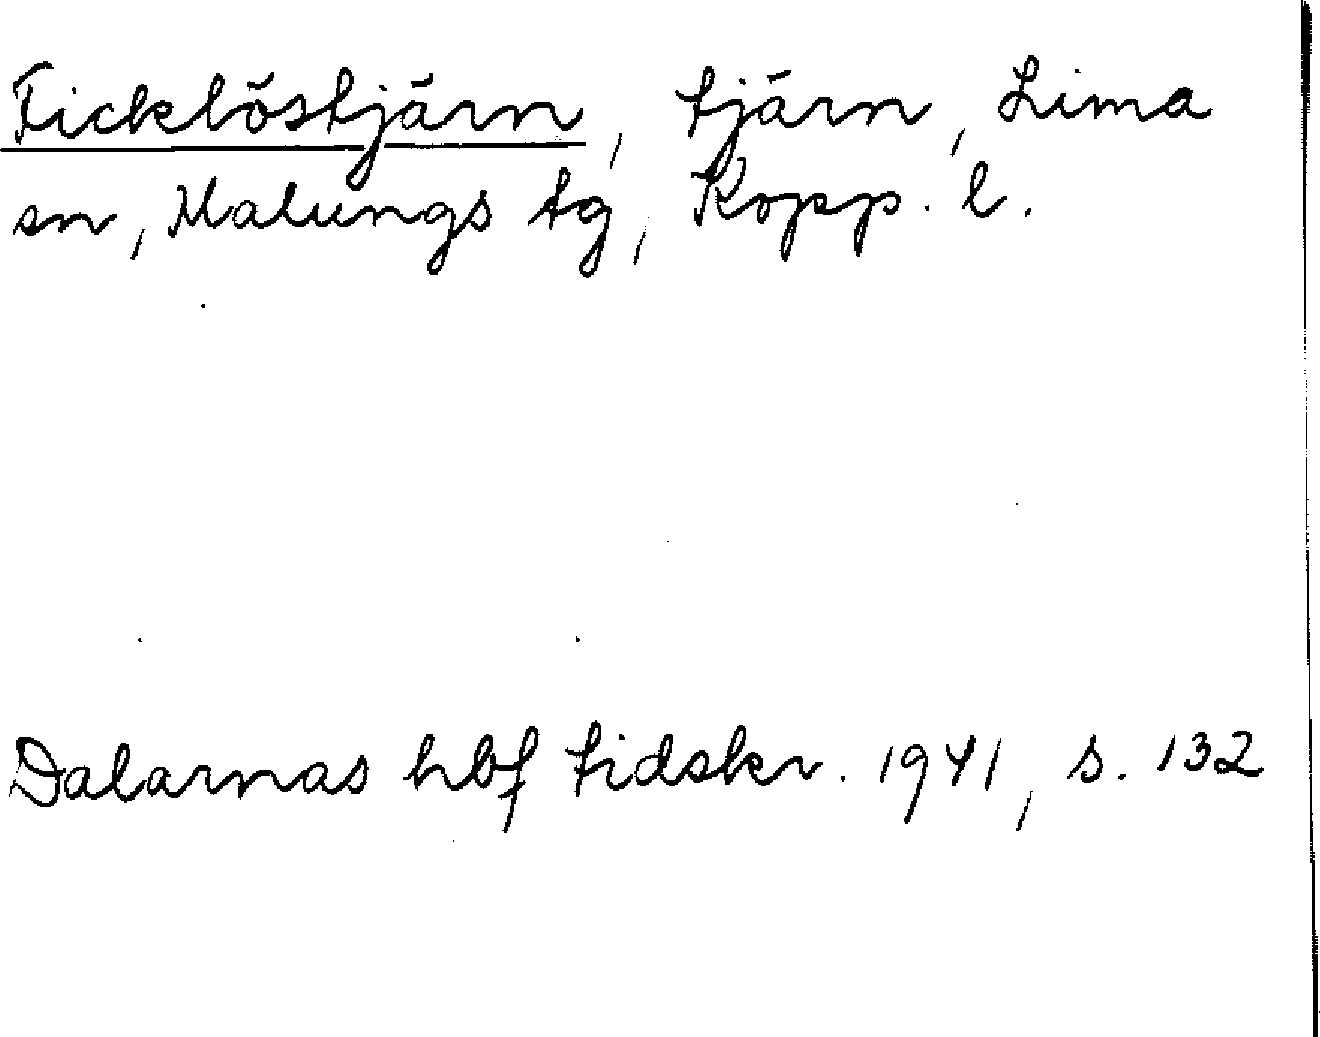 Ficklöstjärn, tjärn, Lima
sn, Malungs tg, Kopp. l.
Dalarnas hbf tidskr. 1941, s. 132